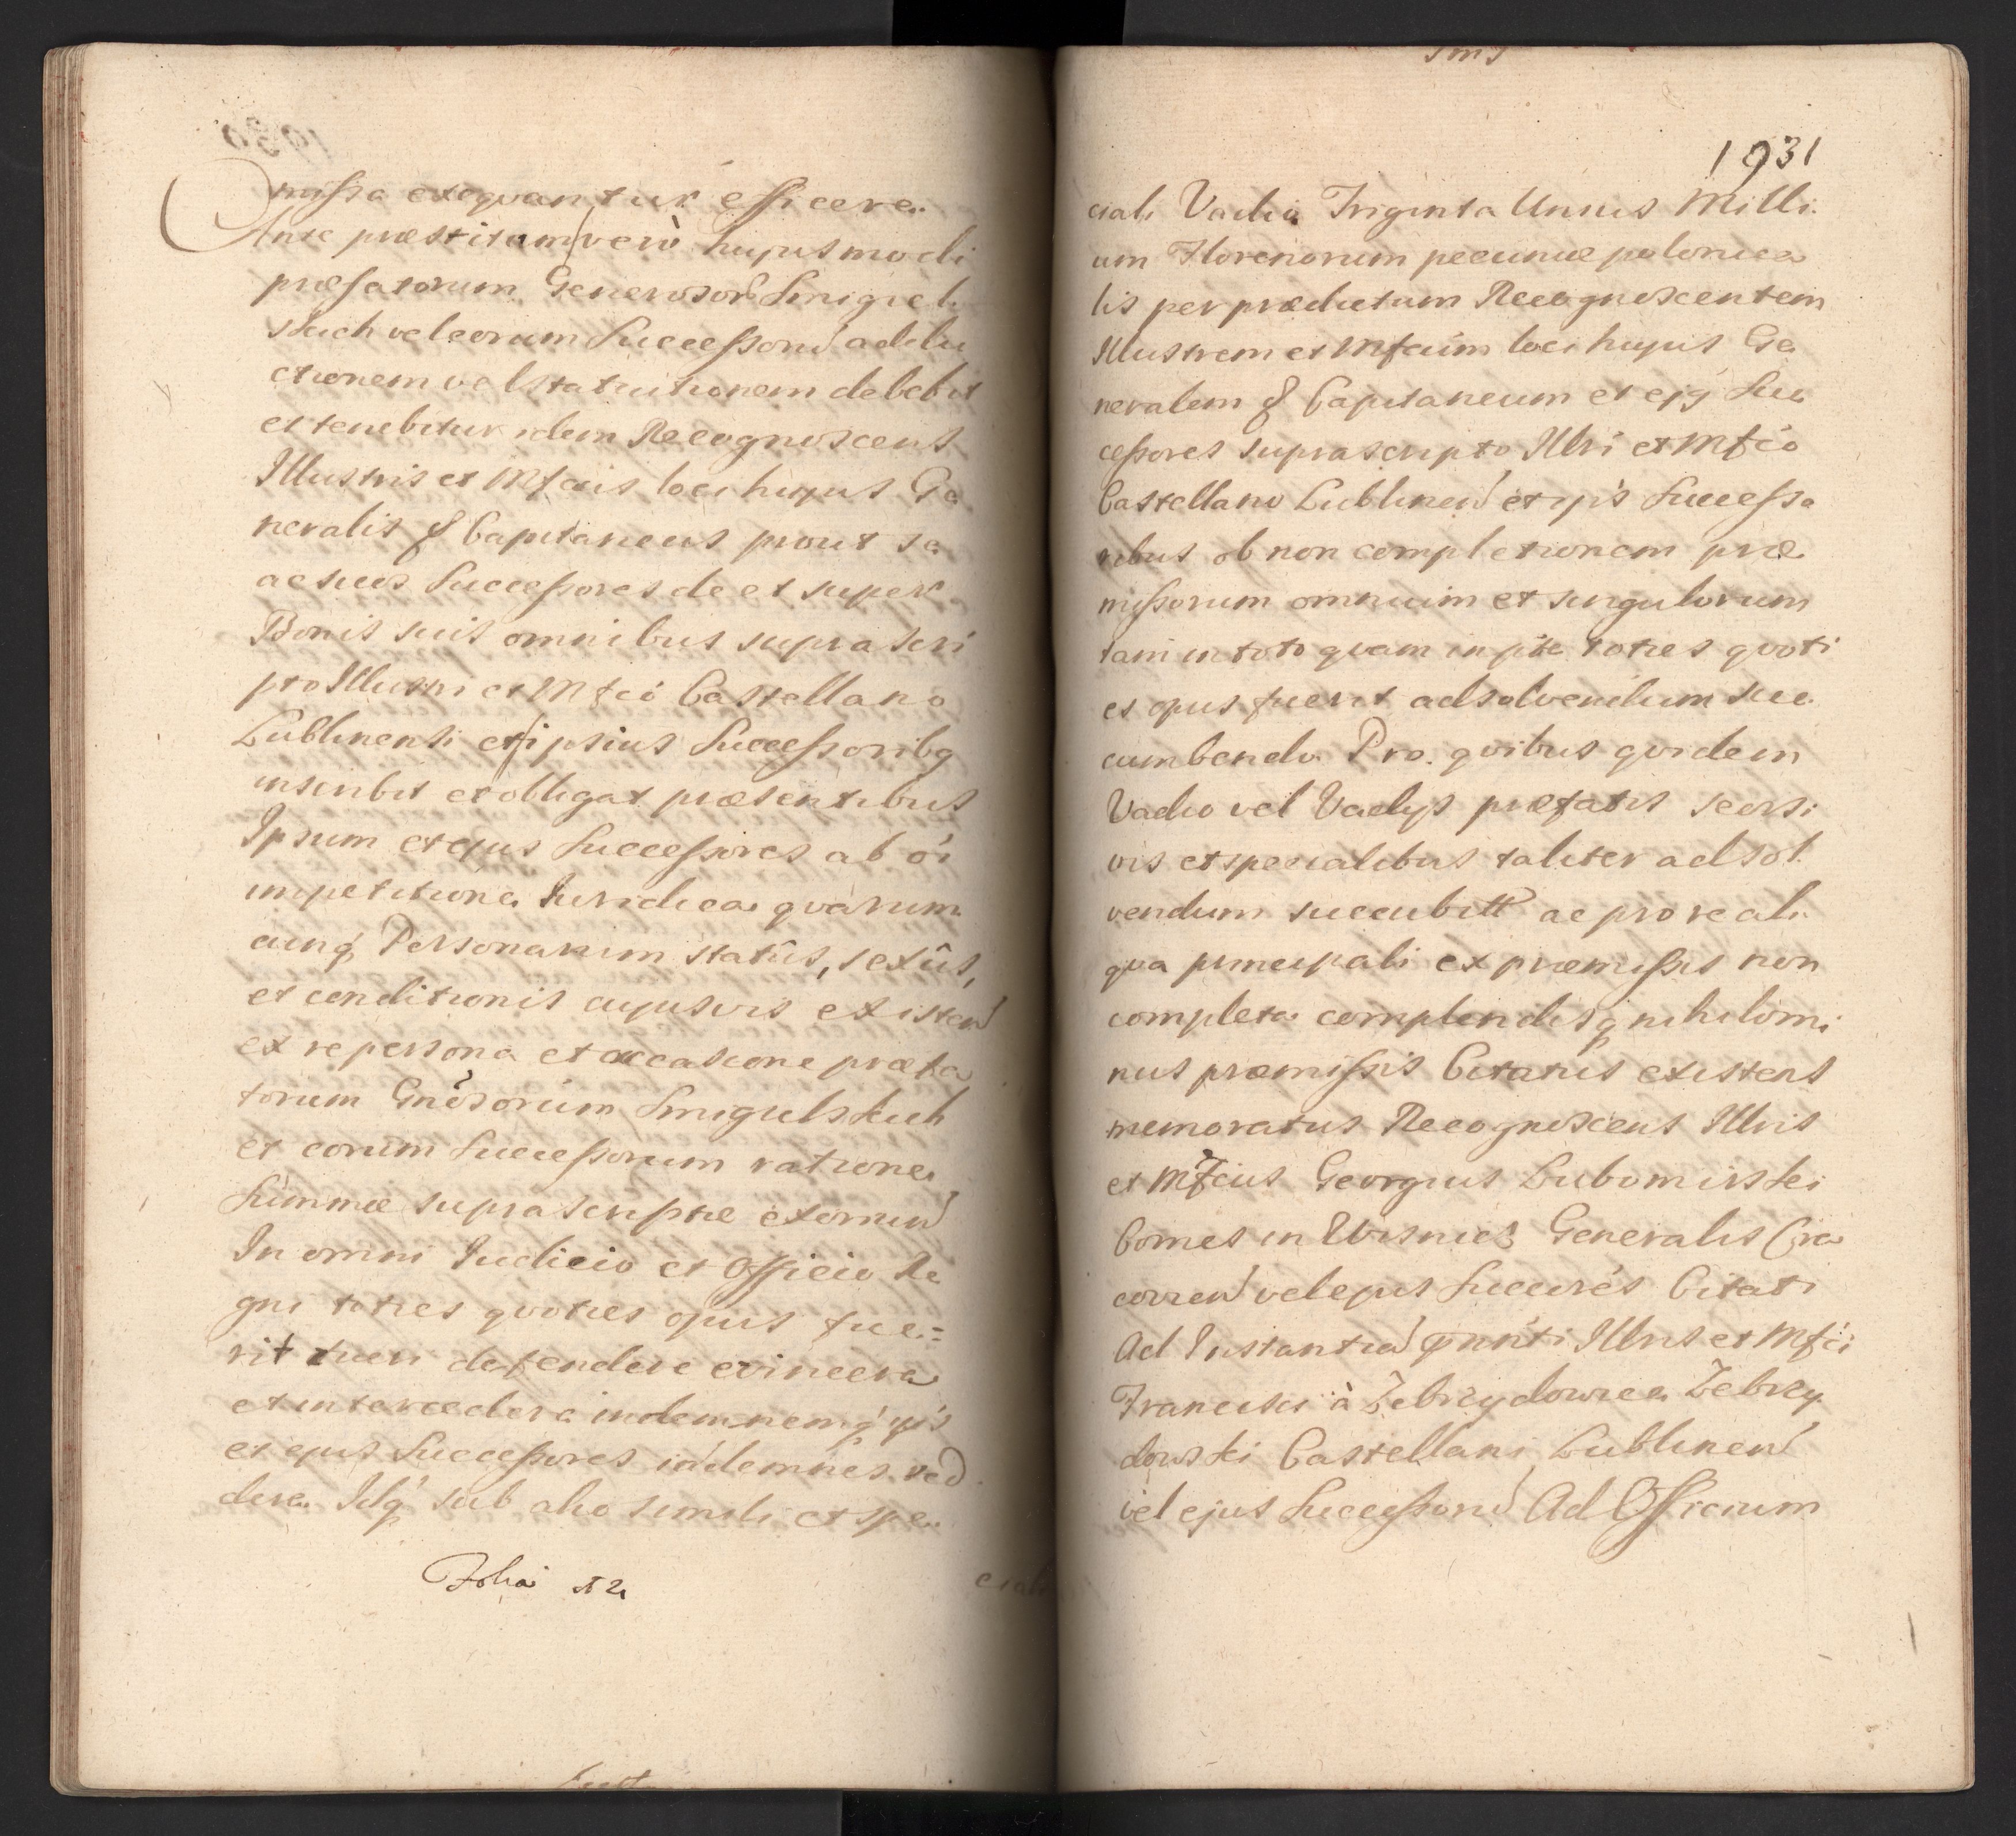 missa exequantur efficere.
Ante præstitam vero hujusmodi
præfatorum Generosorũ Smigiel
skich vel eorum Successorũ addu
ctionem vel statuitionem debebit
et tenebitur idem Recognoscens
Illustris et Mfcus loci hujus Ge
neralis & Capitaneus prout se
ac suos Successores de et super
Bonis suis omnibus suprascri
pto Illustri et Mfco Castellano
Lublinensi et ipsius Successoribq
inscribit et obligat præsentibus
Ipsum et ejus Successores ab oi
impetitione Iuridica quarum
cunq Personarum statûs, sexûs,
et conditionis cujusvis existen
ex re persona et occasione præfa
torum Gnosorum Smigielskich
et eorum Successorum ratione
Summæ suprascriptæ exomin
In omni Iudicio et Officio Re
gni toties quoties opus fue=
rit tueri defendere evincere
et intercedere indemnemq ips
et ejus Successores indemnes red
dere. Idq sub alio simili et spe
Folia 52
1931
ciali Vadio Triginta Unius Milli
um Florenorum pecuniæ polonica
lis per prædictum Recognoscentem
Illustrem et Mfcum loci hujus Ge
neralem & Capitaneum et ejq Suc
cessores suprascripto Illri et Mfco
Castellano Lublinen et ips Successo
ribus ob non completionem præ
missorum omnium et singulorum
tam in toto quam in pte toties quoti
es opus fuerit adsolvendum suc
cumbendo. Pro quibus quidem
Vadio vel Vadys præfatis seorsi
vis et specialibus taliter adsol
vendum succubitt ac pro re ali
qua principali ex præmissis non
completa complendisq nihilomi
nus præmissis Citatus existens
memoratus Recognoscens Illris
et Mfcus Georgius Lubomirski
Comes in Wisnicz Generalis Cra
covien vel ejus Succrés Citati
Ad Instantia Illris et Mfci
Francisci à Zebrzydowice Zebrzy
dowski Castellani Lublinen
vel ejus Successorũ Ad Officium